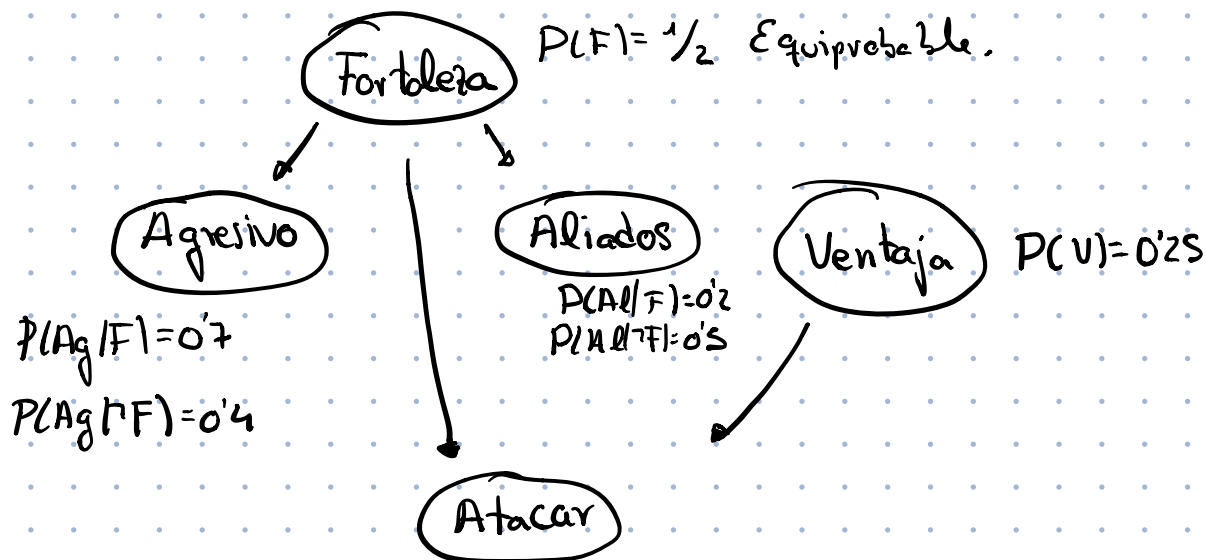 Fortaleza
P(F)= 1/2 Equiprobable.
Agresivo
Aliados
Ventaja
P(V)=0'25
P(Al/F)=0'2
P(Al/¬F)=0'5
P(Ag/F)=0'7
P(Ag/¬F)=0'4
Atacar